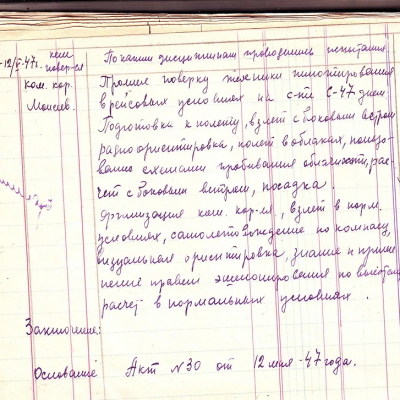 кем повер-ся
По каким дисциплинам проводились испытания
12/V-47г. ком. кор. Моисеев.
Прошел поверку техники пилотирования
в рейсовых условиях на с-те С-47 днем
Подготовка к полету, взлет с боковым ветром
радиоориентировка, полет в облаках, пользо-
вание схемами пробивания облачности, рас-
чет с боковым ветром, посадка.
Организация ком. кор-ля, взлет в норм.
условиях, самолетовождение по компасу,
визуальная ориентировка, знание и приме-
нение правил эшелонирования по высотам
расчет в нормальных условиях.
Заключение:
Основание Акт №30 от 12 мая-47 года.